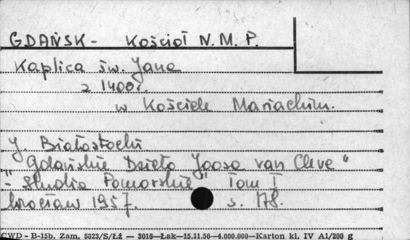 GDAŃSK - Kościół N.M.P.
Kaplica św. Jana
z 1400r.
w Kościele Mariackim.
J. Białostocki
"Gdańskie Dzieło Joosa van Cleve"
- "Studia Pomorskie" Tom I
Wrocław 1957. s. 178.
CWD - B-15b, Zam, 5523/S/ŁŻ — 3016—Łak—15.11.56—4.000.000—Karton kl. IV A1/200 g